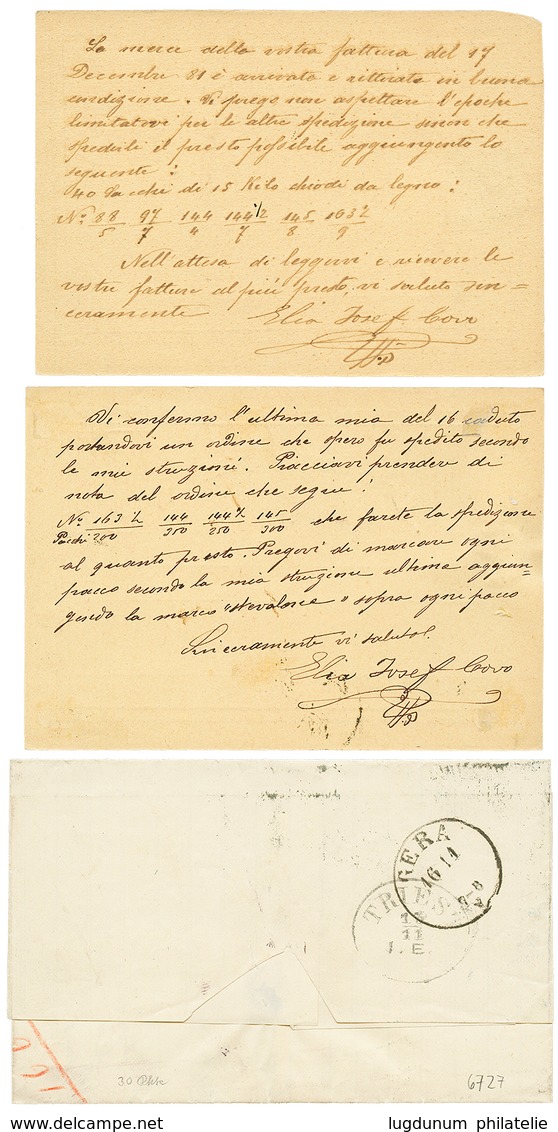 La merce della vostra fattura del 17
Decembre 81 è arrivata e ritirata in buona
condizione. Vi prego non aspettare l'epoche
limitatovi per le altre spedizione sinon che
spedirli il presto possibile aggiungento lo
seguente:
40 Sacchi di 15 Kilo chiodi da legno:
No. 88 97 144 144 1/2 145 163 1/2
5 7 4 7 8 9
Nell'attesa di leggervi e ricevere le
vostre fatture al più presto, vi saluto sin=
ceramente Elia Josef Covo
Vi confermo l'ultima mia del 16 caduto
portandovi un ordine che spero fu spedito secondo
le mie struzioni. Piacciavi prendere di
nota del ordine che segue!
No. 163 1/2 144 144 1/2 145 che farete la spedizione
Pacchi 200 350 250 300
al quanto presto. Pregovi di marcare ogni
pacco secondo la mia struzione ultima aggiun=
gendo la marca sopra ogni pacco
Sinceramente vi saluto!
Elia Josef Covo
GERA
16 11
TRIEST
11
I. E.
30 6727
lugdunum philatelie